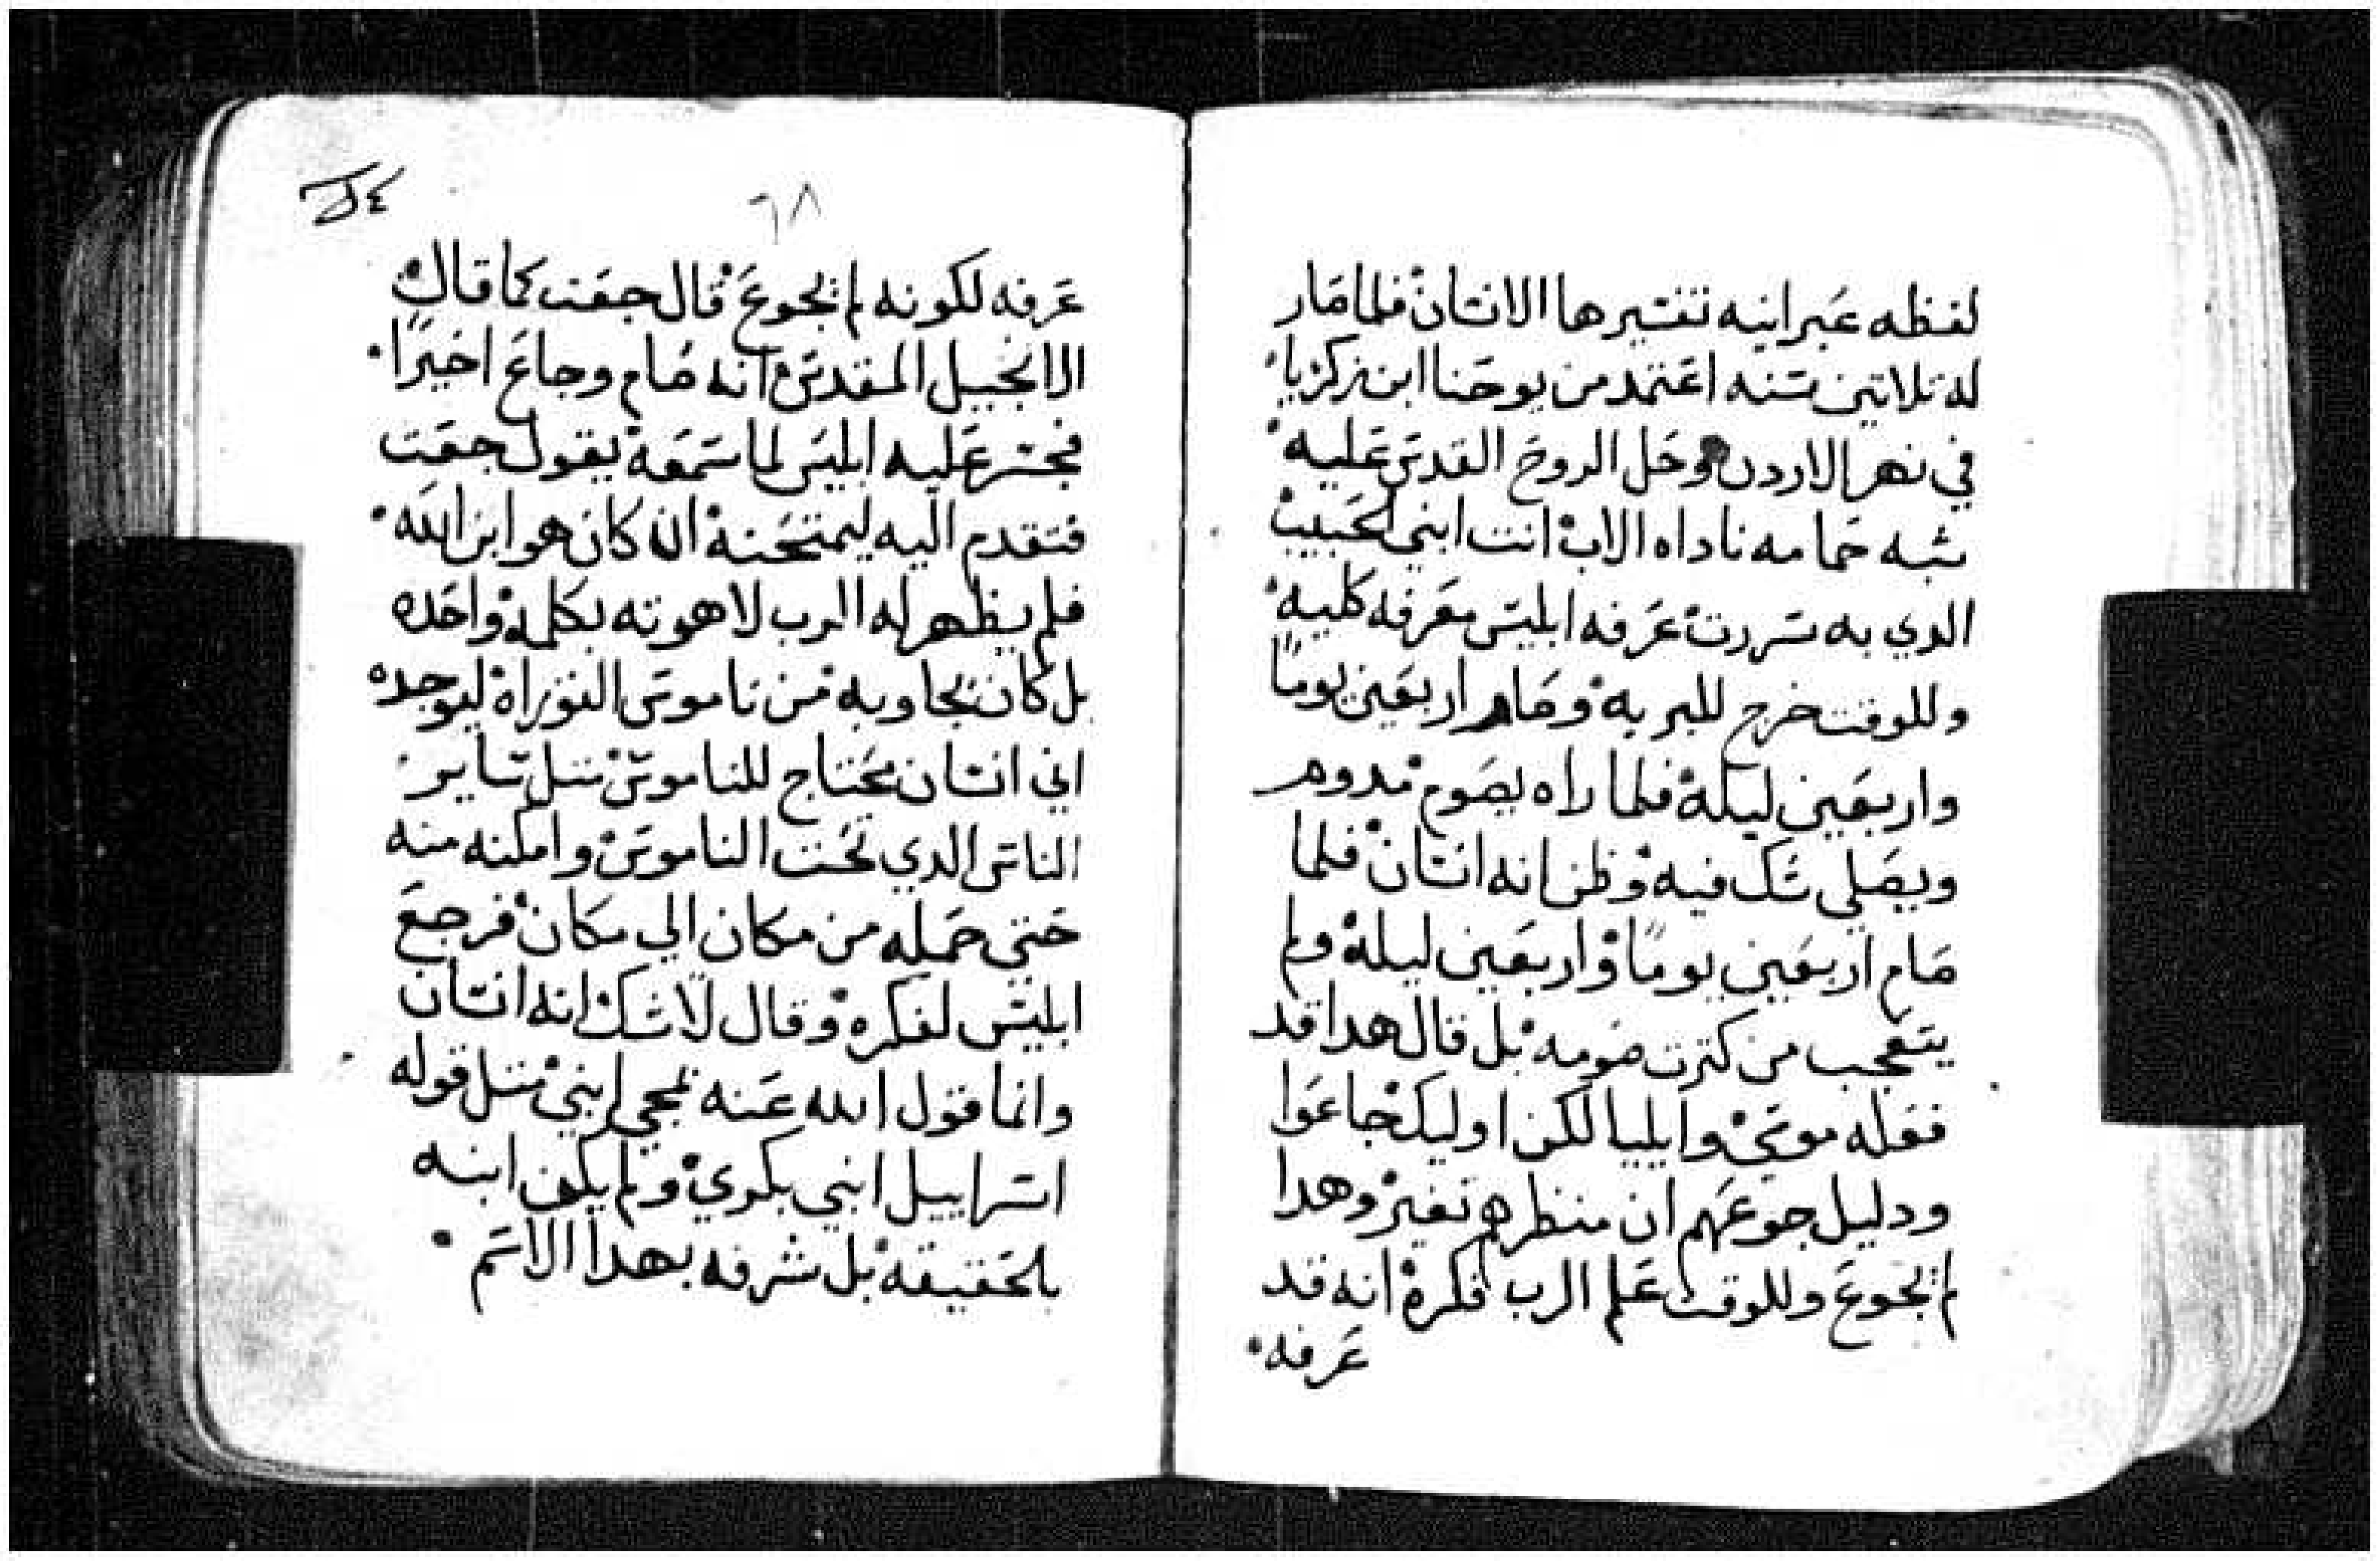 لفظه عبرانيه تفسيرها الانسان فلما صار
له تلاتين سنه اعتمد من يوحنا ابن زكريا
في نهر الاردن وحل الروح القدس عليه
شبه حمامه ناداه الاب انت ابني الحبيب
الدي به سررت عرفه ابليس معرفه كليه
وللوقت خرج للبريه وصام اربعين يوماً
واربعين ليله فلما راه يصوم مدوم
ويصلي شك فيه وظن انه انسان فلما
صام اربعين يوماً واربعين ليله ولم
يتعجب من كترت صومه بل قال هدا قد
فعله موسي وايليا لكن اوليك جاعوا
ودليل جوعهم ان منظرهم تغير وهدا
لم يجوع وللوقت علم الرب فكره انه قد
عرفه
٦٨
عرفه لكونه لم يجوع قال جعت كما قال
الانجيل المقدس انه صام وجاع اخيراً
فجسر عليه ابليس لما سمعه يقول جعت
فتقدم اليه ليمتحنه ان كان هو ابن الله
فلم يظهر له الرب لاهوته بكلمه واحده
بل كان يجاوبه من ناموس التوراه ليوجده
اني انسان محتاج للناموس متل ساير
الناس الدي تحت الناموس وامكنه منه
حتي حمله من مكان الي مكان فرجع
ابليس لفكره وقال لا شك انه انسان
وانما قول الله عنه ابني متل قوله
اسراييل ابني بكري ولم يكن ابنه
بلحقيقه بل شرفه بهدا الاسم